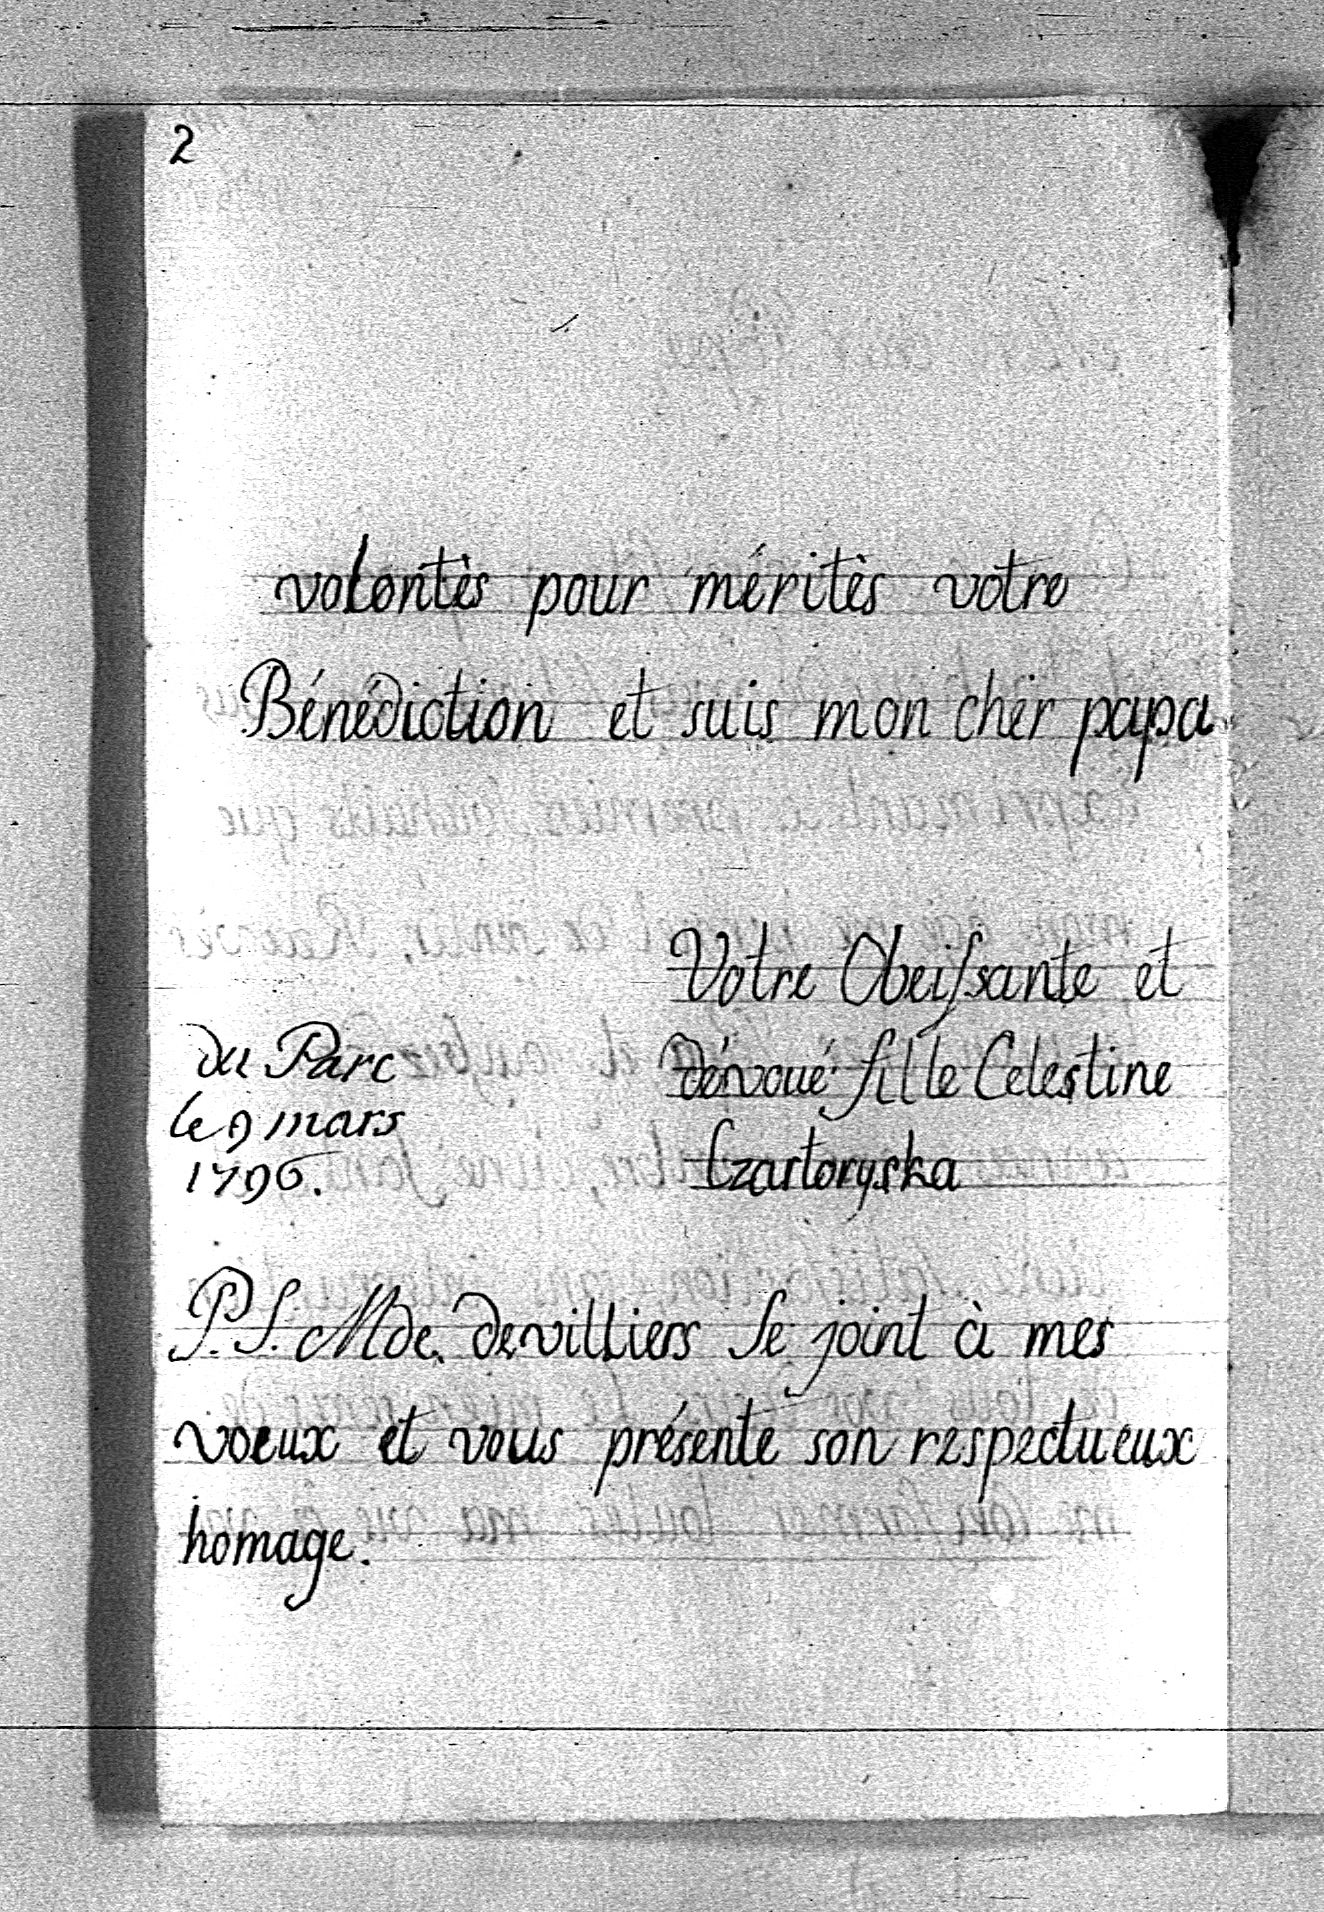 2
volontès pour méritès votre
Bénédiction et suis mon cher papa
Votre Obeiſsante et
dévoué fille Celestine
Czartoryska
du Parc
le 9 mars
1796.
P.S. Mde. devilliers Se joint à mes
voeux et vous présente son respectueux
homage.